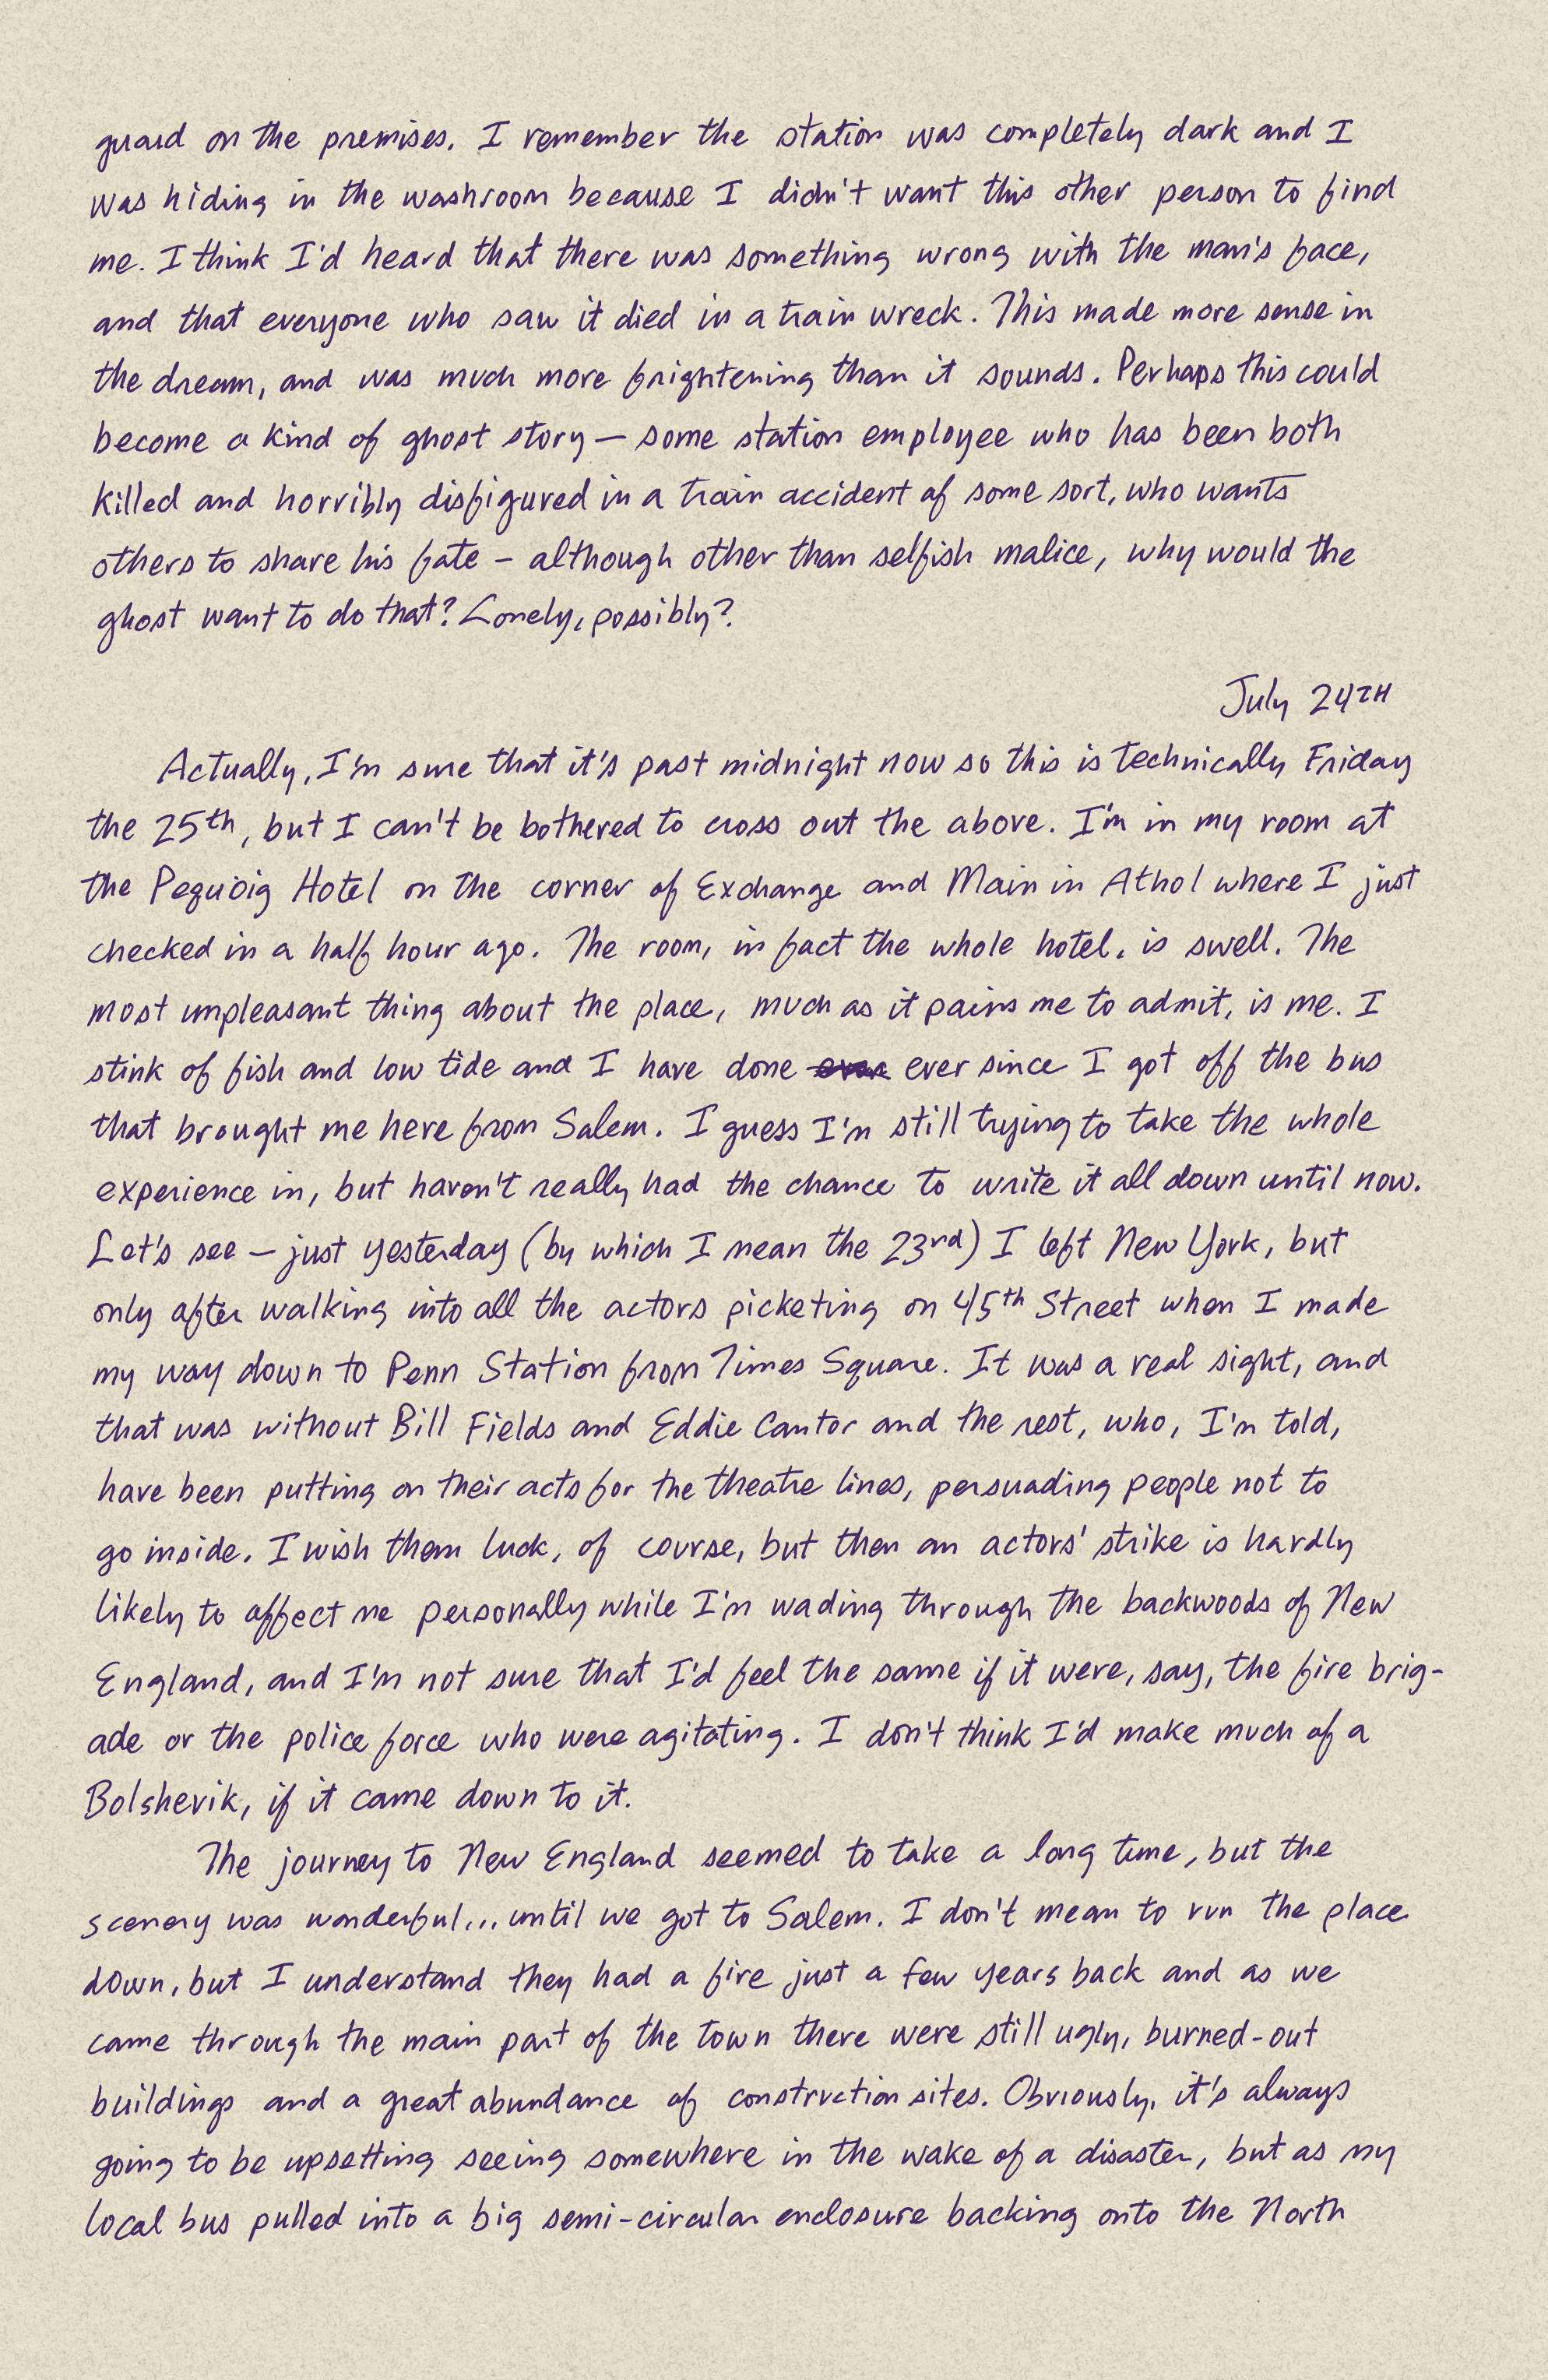 guard on the premises. I remember the station was completely dark and I
was hiding in the washroom because I didn't want this other person to find
me. I think I'd heard that there was something wrong with the man's face,
and that everyone who saw it died in a train wreck. This made more sense in
the dream, and was much more frightening than it sounds. Perhaps this could
become a kind of ghost story — some station employee who has been both
killed and horribly disfigured in a train accident of some sort, who wants
others to share his fate – although other than selfish malice, why would the
ghost want to do that? Lonely, possibly?
July 24TH
Actually, I'm sure that it's past midnight now so this is technically Friday
the 25th, but I can't be bothered to cross out the above. I'm in my room at
the Pequoig Hotel on the corner of Exchange and Main in Athol where I just
checked in a half hour ago. The room, in fact the whole hotel, is swell. The
most unpleasant thing about the place, much as it pains me to admit, is me. I
stink of fish and low tide and I have done ever since I got off the bus
that brought me here from Salem. I guess I'm still trying to take the whole
experience in, but haven't really had the chance to write it all down until now.
Let's see – just yesterday (by which I mean the 23rd) I left New York, but
only after walking into all the actors picketing on 45th Street when I made
my way down to Penn Station from Times Square. It was a real sight, and
that was without Bill Fields and Eddie Cantor and the rest, who, I'm told,
have been putting on their acts for the theatre lines, persuading people not to
go inside. I wish them luck, of course, but then an actors' strike is hardly
likely to affect me personally while I'm wading through the backwoods of New
England, and I'm not sure that I'd feel the same if it were, say, the fire brig-
ade or the police force who were agitating. I don't think I'd make much of a
Bolshevik, if it came down to it.
The journey to New England seemed to take a long time, but the
scenery was wonderful... until we got to Salem. I don't mean to run the place
down, but I understand they had a fire just a few years back and as we
came through the main part of the town there were still ugly, burned-out
buildings and a great abundance of construction sites. Obviously, it's always
going to be upsetting seeing somewhere in the wake of a disaster, but as my
local bus pulled into a big semi-circular enclosure backing onto the North